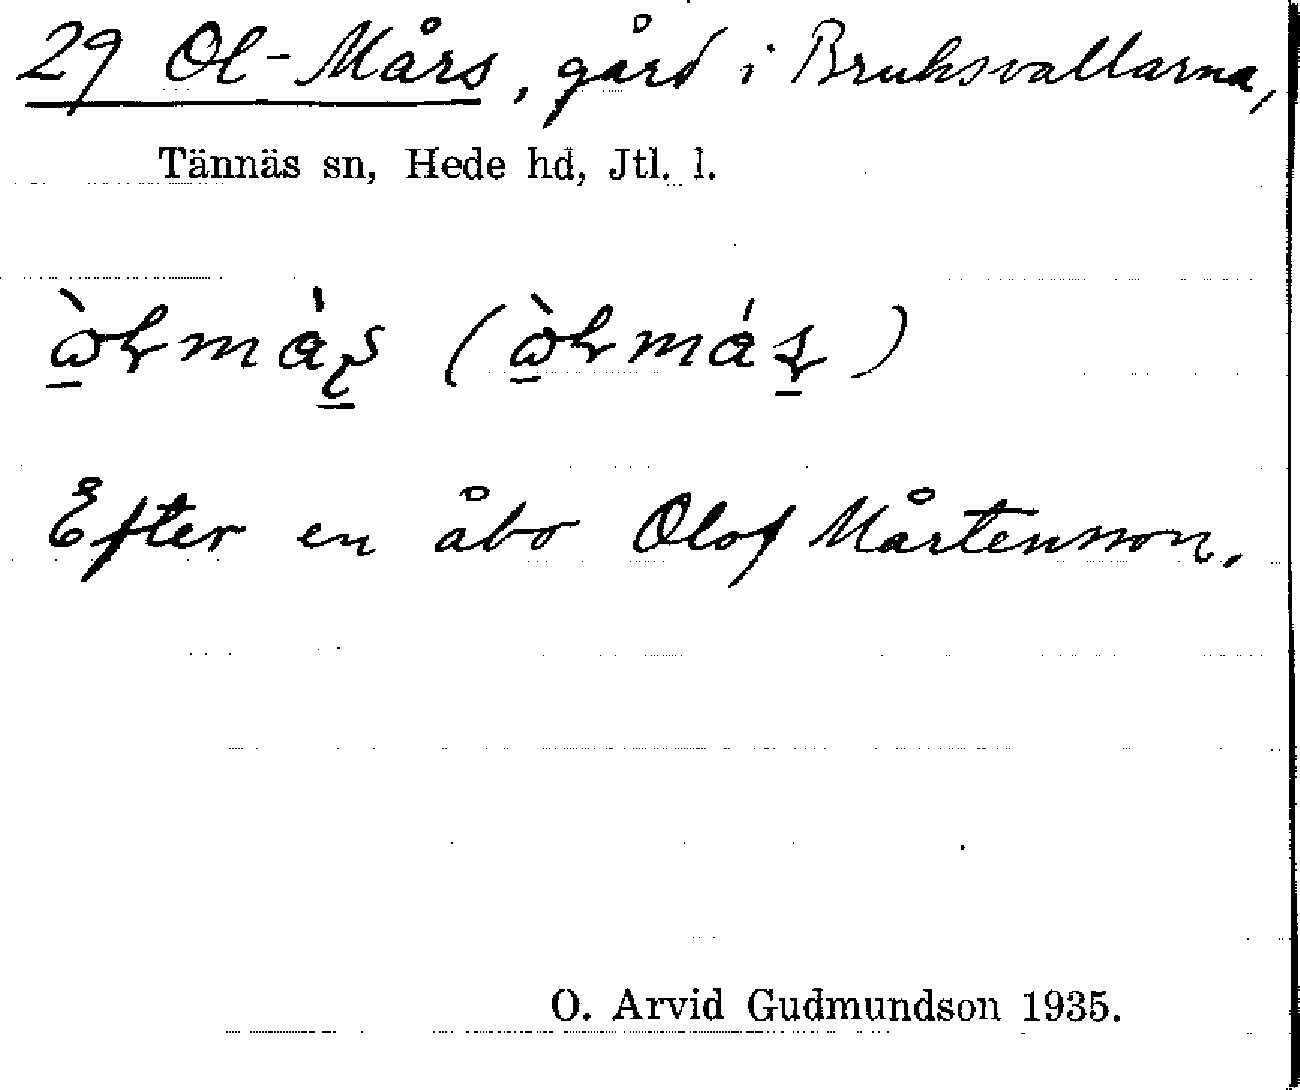 29 Ol-Mårs, gård i Bruksvallarna,
Tännäs sn, Hede hd, Jtl. l.
Efter en åbo Olof Mårtensson.
O. Arvid Gudmundson 1935.